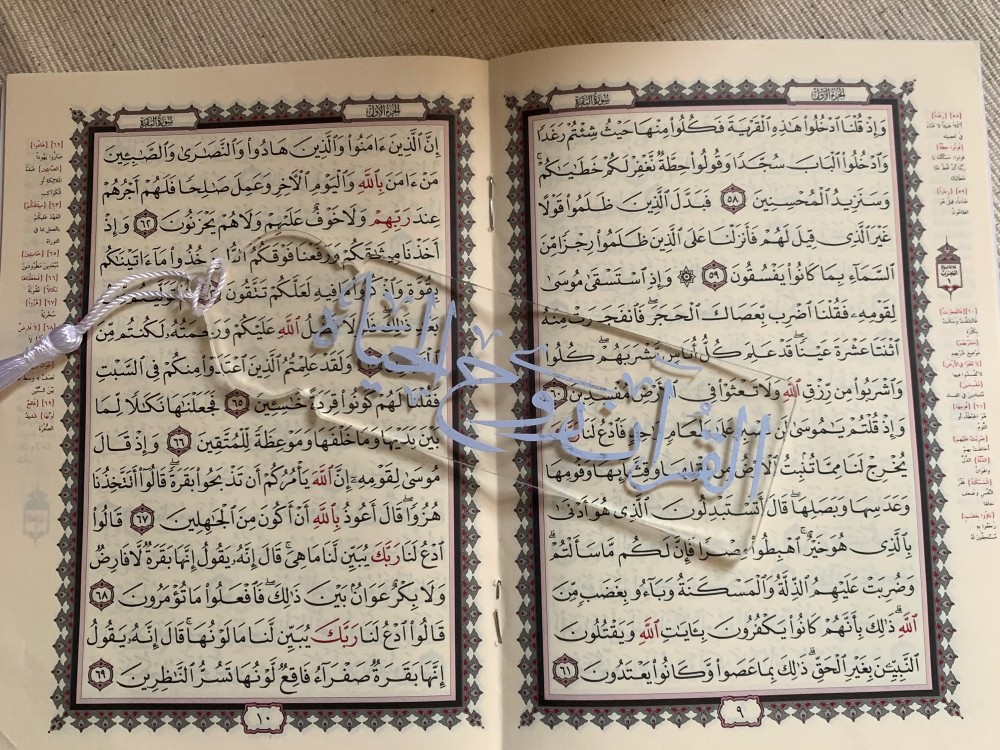 الجزء الأول
سورة البقرة
وَإِذْ قُلْنَا ادْخُلُوا هَٰذِهِ الْقَرْيَةَ فَكُلُوا مِنْهَا حَيْثُ شِئْتُمْ رَغَدًا
وَادْخُلُوا الْبَابَ سُجَّدًا وَقُولُوا حِطَّةٌ نَّغْفِرْ لَكُمْ خَطَايَاكُمْ ۚ
وَسَنَزِيدُ الْمُحْسِنِينَ ٥٨ فَبَدَّلَ الَّذِينَ ظَلَمُوا قَوْلًا
غَيْرَ الَّذِي قِيلَ لَهُمْ فَأَنزَلْنَا عَلَى الَّذِينَ ظَلَمُوا رِجْزًا مِّنَ
السَّمَاءِ بِمَا كَانُوا يَفْسُقُونَ ٥٩ ۞ وَإِذِ اسْتَسْقَىٰ مُوسَىٰ
لِقَوْمِهِ فَقُلْنَا اضْرِب بِّعَصَاكَ الْحَجَرَ ۖ فَانفَجَرَتْ مِنْهُ
اثْنَتَا عَشْرَةَ عَيْنًا ۖ قَدْ عَلِمَ كُلُّ أُنَاسٍ مَّشْرَبَهُمْ ۖ كُلُوا
وَاشْرَبُوا مِن رِّزْقِ اللَّهِ وَلَا تَعْثَوْا فِي الْأَرْضِ مُفْسِدِينَ ٦٠
وَإِذْ قُلْتُمْ يَا مُوسَىٰ لَن نَّصْبِرَ عَلَىٰ طَعَامٍ وَاحِدٍ فَادْعُ لَنَا رَبَّكَ
يُخْرِجْ لَنَا مِمَّا تُنبِتُ الْأَرْضُ مِن بَقْلِهَا وَقِثَّائِهَا وَفُومِهَا
وَعَدَسِهَا وَبَصَلِهَا ۖ قَالَ أَتَسْتَبْدِلُونَ الَّذِي هُوَ أَدْنَىٰ
بِالَّذِي هُوَ خَيْرٌ ۚ اهْبِطُوا مِصْرًا فَإِنَّ لَكُم مَّا سَأَلْتُمْ ۗ
وَضُرِبَتْ عَلَيْهِمُ الذِّلَّةُ وَالْمَسْكَنَةُ وَبَاءُو بِغَضَبٍ مِّنَ
اللَّهِ ۗ ذَٰلِكَ بِأَنَّهُمْ كَانُوا يَكْفُرُونَ بِآيَاتِ اللَّهِ وَيَقْتُلُونَ
النَّبِيِّينَ بِغَيْرِ الْحَقِّ ۗ ذَٰلِكَ بِمَا عَصَوا وَّكَانُوا يَعْتَدُونَ ٦١
٩
الجزء الأول
سورة البقرة
إِنَّ الَّذِينَ آمَنُوا وَالَّذِينَ هَادُوا وَالنَّصَارَىٰ وَالصَّابِئِينَ
مَنْ آمَنَ بِاللَّهِ وَالْيَوْمِ الْآخِرِ وَعَمِلَ صَالِحًا فَلَهُمْ أَجْرُهُمْ
عِندَ رَبِّهِمْ وَلَا خَوْفٌ عَلَيْهِمْ وَلَا هُمْ يَحْزَنُونَ ٦٢ وَإِذْ
أَخَذْنَا مِيثَاقَكُمْ وَرَفَعْنَا فَوْقَكُمُ الطُّورَ خُذُوا مَا آتَيْنَاكُم
بِقُوَّةٍ وَاذْكُرُوا مَا فِيهِ لَعَلَّكُمْ تَتَّقُونَ ٦٣ ثُمَّ تَوَلَّيْتُم مِّن
بَعْدِ ذَٰلِكَ ۖ فَلَوْلَا فَضْلُ اللَّهِ عَلَيْكُمْ وَرَحْمَتُهُ لَكُنتُم مِّنَ
الْخَاسِرِينَ ٦٤ وَلَقَدْ عَلِمْتُمُ الَّذِينَ اعْتَدَوْا مِنكُمْ فِي السَّبْتِ
فَقُلْنَا لَهُمْ كُونُوا قِرَدَةً خَاسِئِينَ ٦٥ فَجَعَلْنَاهَا نَكَالًا لِّمَا
بَيْنَ يَدَيْهَا وَمَا خَلْفَهَا وَمَوْعِظَةً لِّلْمُتَّقِينَ ٦٦ وَإِذْ قَالَ
مُوسَىٰ لِقَوْمِهِ إِنَّ اللَّهَ يَأْمُرُكُمْ أَن تَذْبَحُوا بَقَرَةً ۖ قَالُوا أَتَتَّخِذُنَا
هُزُوًا ۖ قَالَ أَعُوذُ بِاللَّهِ أَنْ أَكُونَ مِنَ الْجَاهِلِينَ ٦٧ قَالُوا
ادْعُ لَنَا رَبَّكَ يُبَيِّن لَّنَا مَا هِيَ ۚ قَالَ إِنَّهُ يَقُولُ إِنَّهَا بَقَرَةٌ لَّا فَارِضٌ
وَلَا بِكْرٌ عَوَانٌ بَيْنَ ذَٰلِكَ ۖ فَافْعَلُوا مَا تُؤْمَرُونَ ٦٨
قَالُوا ادْعُ لَنَا رَبَّكَ يُبَيِّن لَّنَا مَا لَوْنُهَا ۚ قَالَ إِنَّهُ يَقُولُ
إِنَّهَا بَقَرَةٌ صَفْرَاءُ فَاقِعٌ لَّوْنُهَا تَسُرُّ النَّاظِرِينَ ٦٩
١٠
القرآن روح الحياة